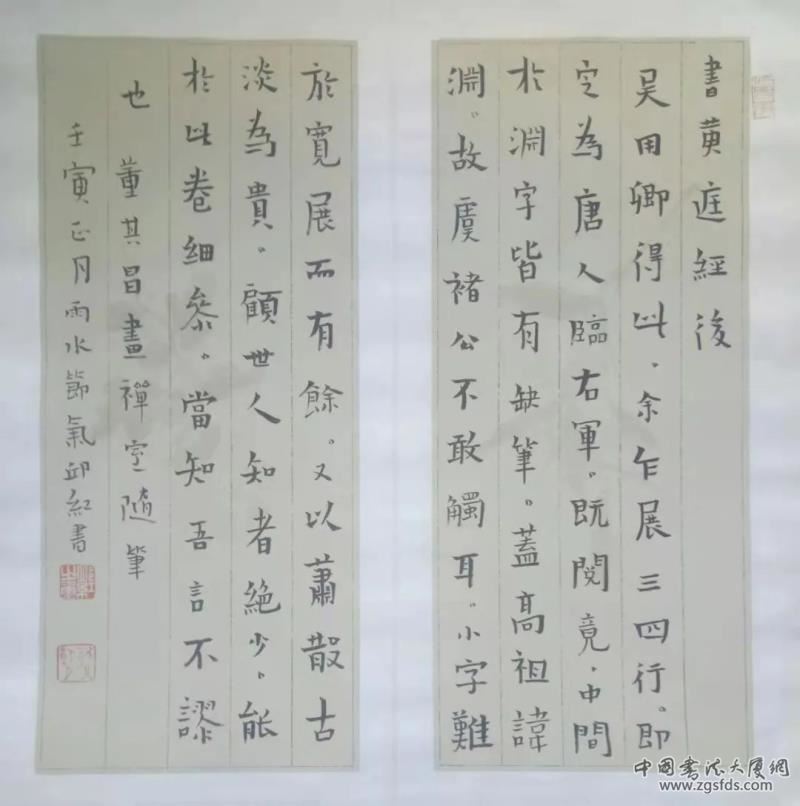 書黄庭經後
吴用卿得此，余乍展三四行。即
定為唐人臨右軍。既閱竟，中間
於淵字皆有缺筆。蓋高祖諱
淵。故虞褚公不敢觸耳。小字難
於寬展而有餘。又以蕭散古
淡為貴。顧世人知者絶少。能
於此卷細参。當知吾言不謬
也 董其昌畫禪室隨筆
壬寅正月雨水節氣邱紅書
中国書法大厦網
www.zgsfds.com